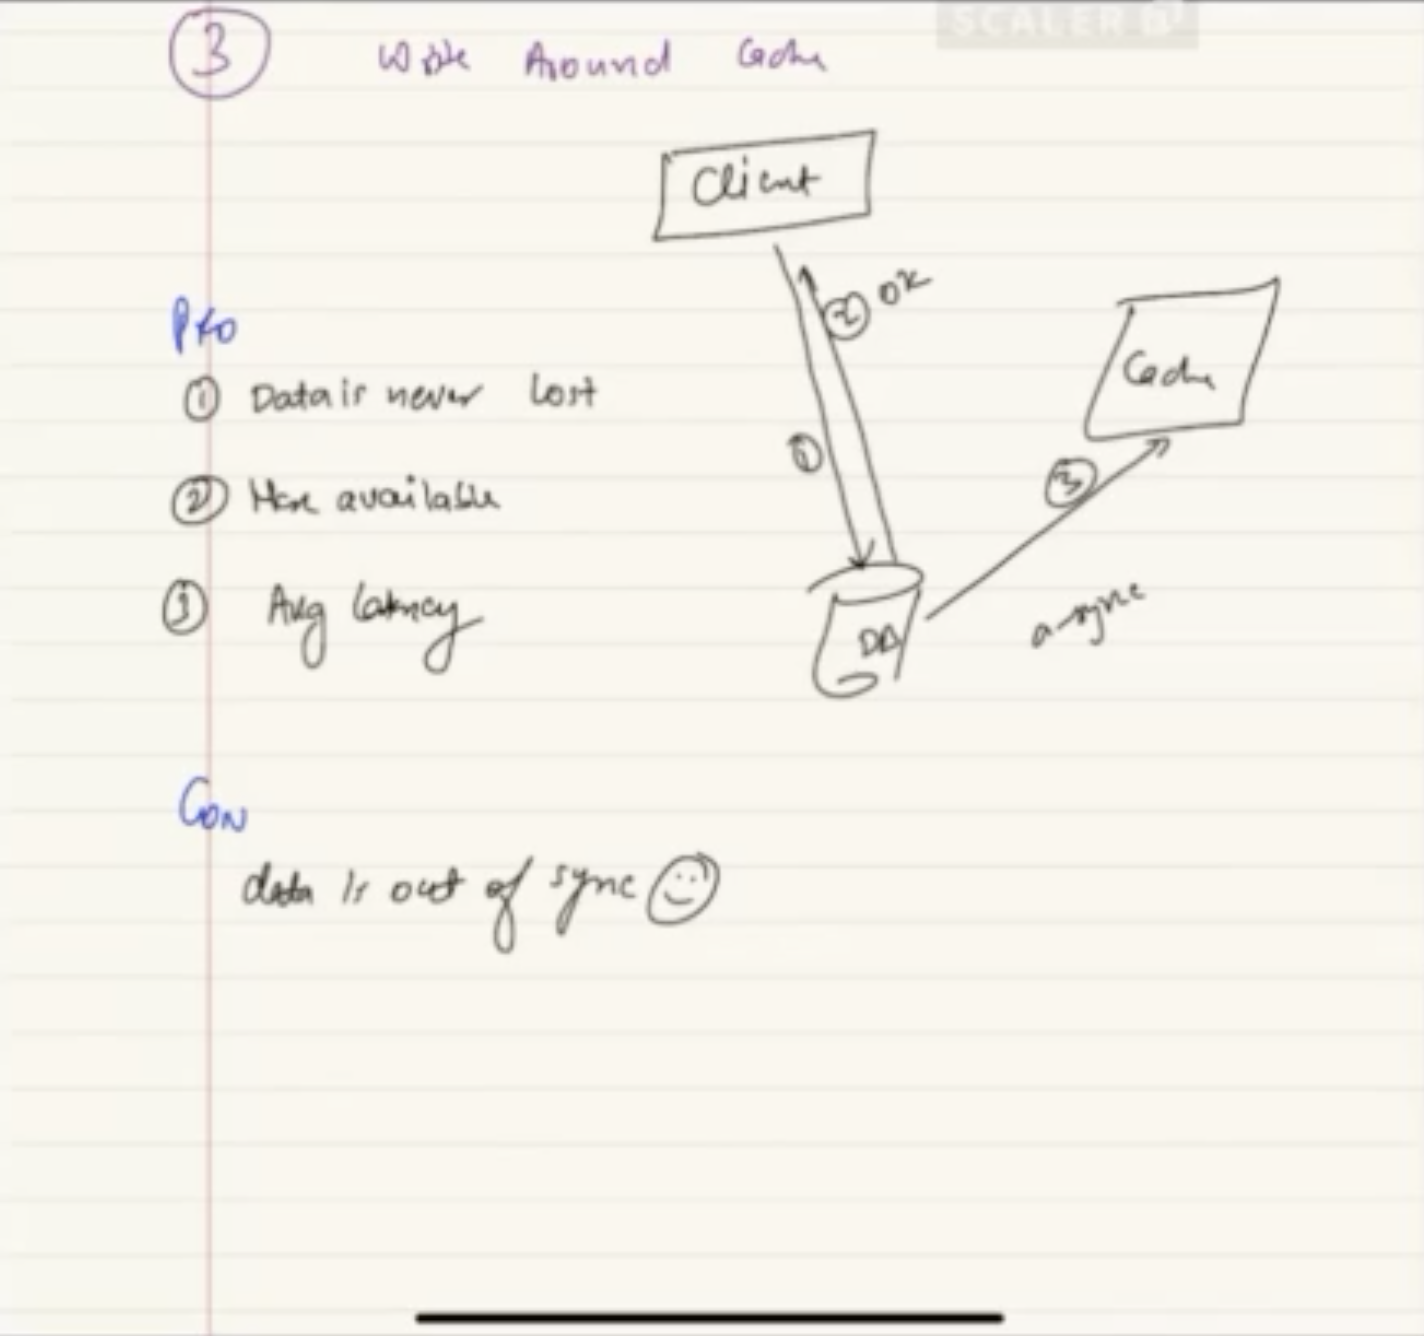 SCALER
3 Write Around Cache
Client
2 OK
Cache
1
3
DB
async
Pro
1 Data is never lost
2 More available
3 Avg latency
Con
data is out of sync